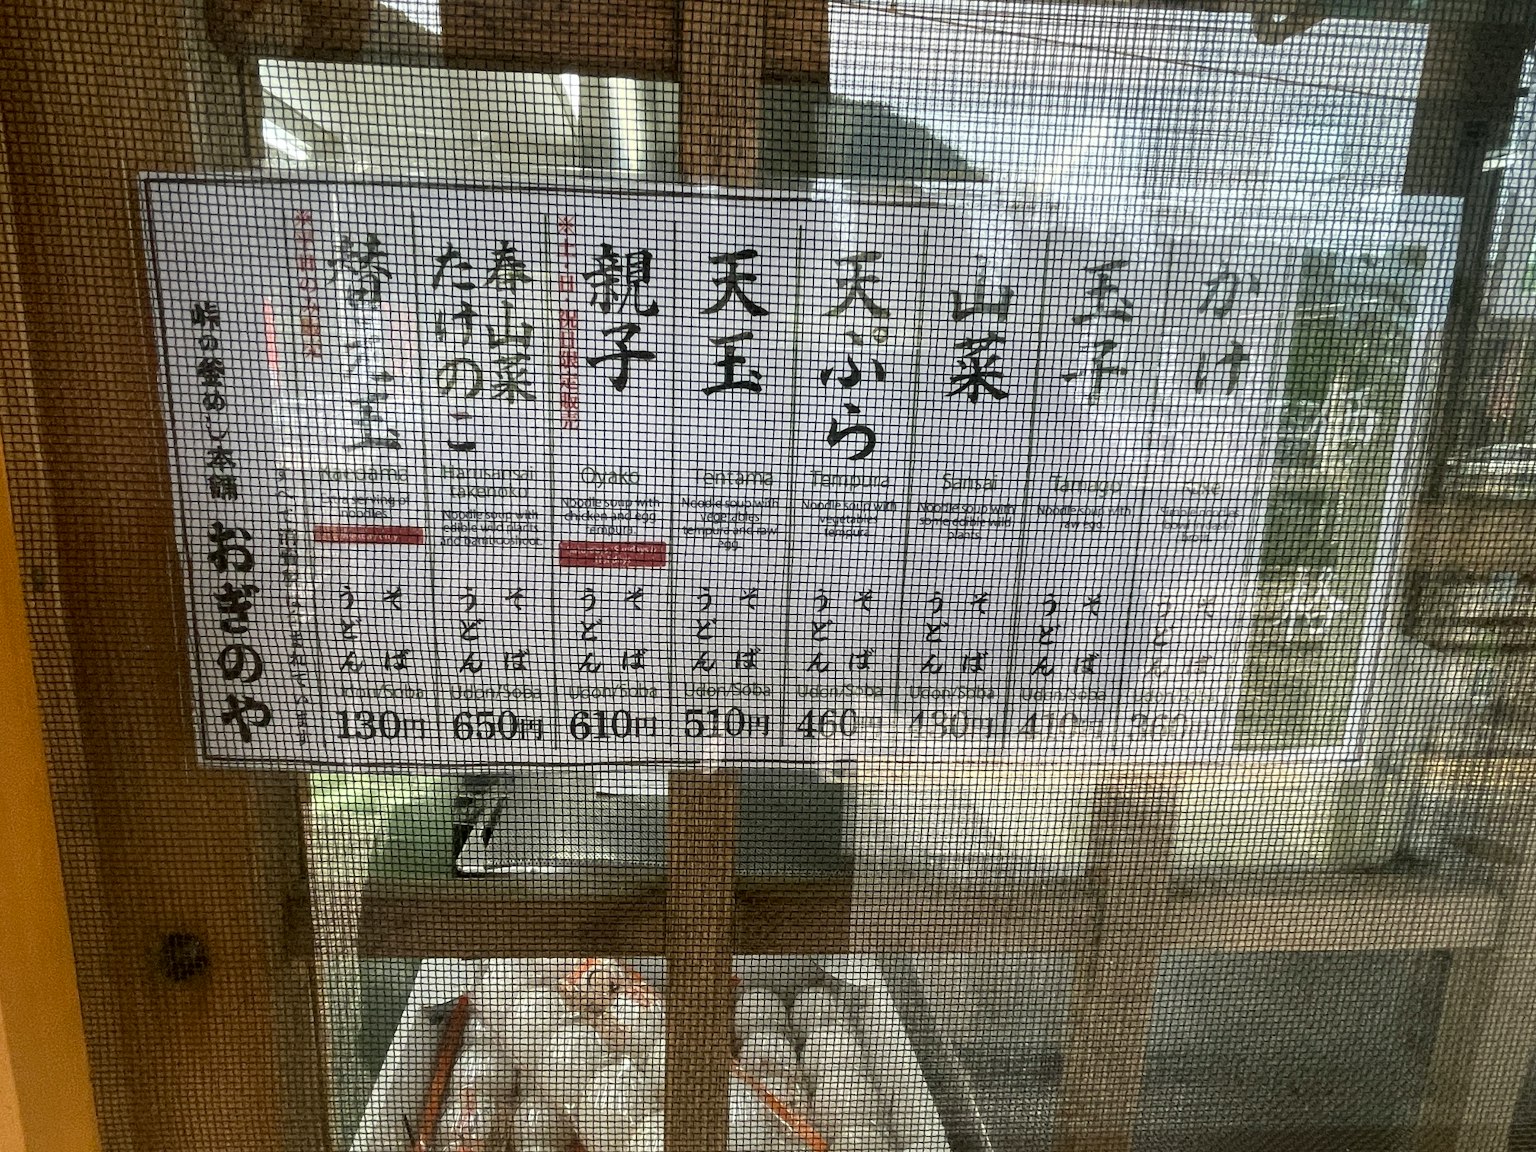 かけ
うどん
そば
Udon/Soba
360円
玉子
Tamago
Noodle soup with
raw egg
うどん
そば
Udon/Soba
410円
山菜
Sansai
Noodle soup with
some edible wild
plants
うどん
そば
Udon/Soba
430円
天ぷら
Tempura
Noodle soup with
vegetables
tempura
うどん
そば
Udon/Soba
460円
天玉
Tentama
Noodle soup with
vegetables
tempura and raw
egg
うどん
そば
Udon/Soba
510円
※土・日・祝日限定販売
親子
Oyako
Noodle soup with
chicken and egg
tempura
うどん
そば
Udon/Soba
610円
春山菜
たけのこ
Harusansai
takenoko
Noodle soup with
edible wild plants
and bambooshoot
うどん
そば
Udon/Soba
650円
替
玉
Kaedama
Extra serving of
noodles
うどん
そば
Udon/Soba
130円
峠の釜めし本舗 おぎのや